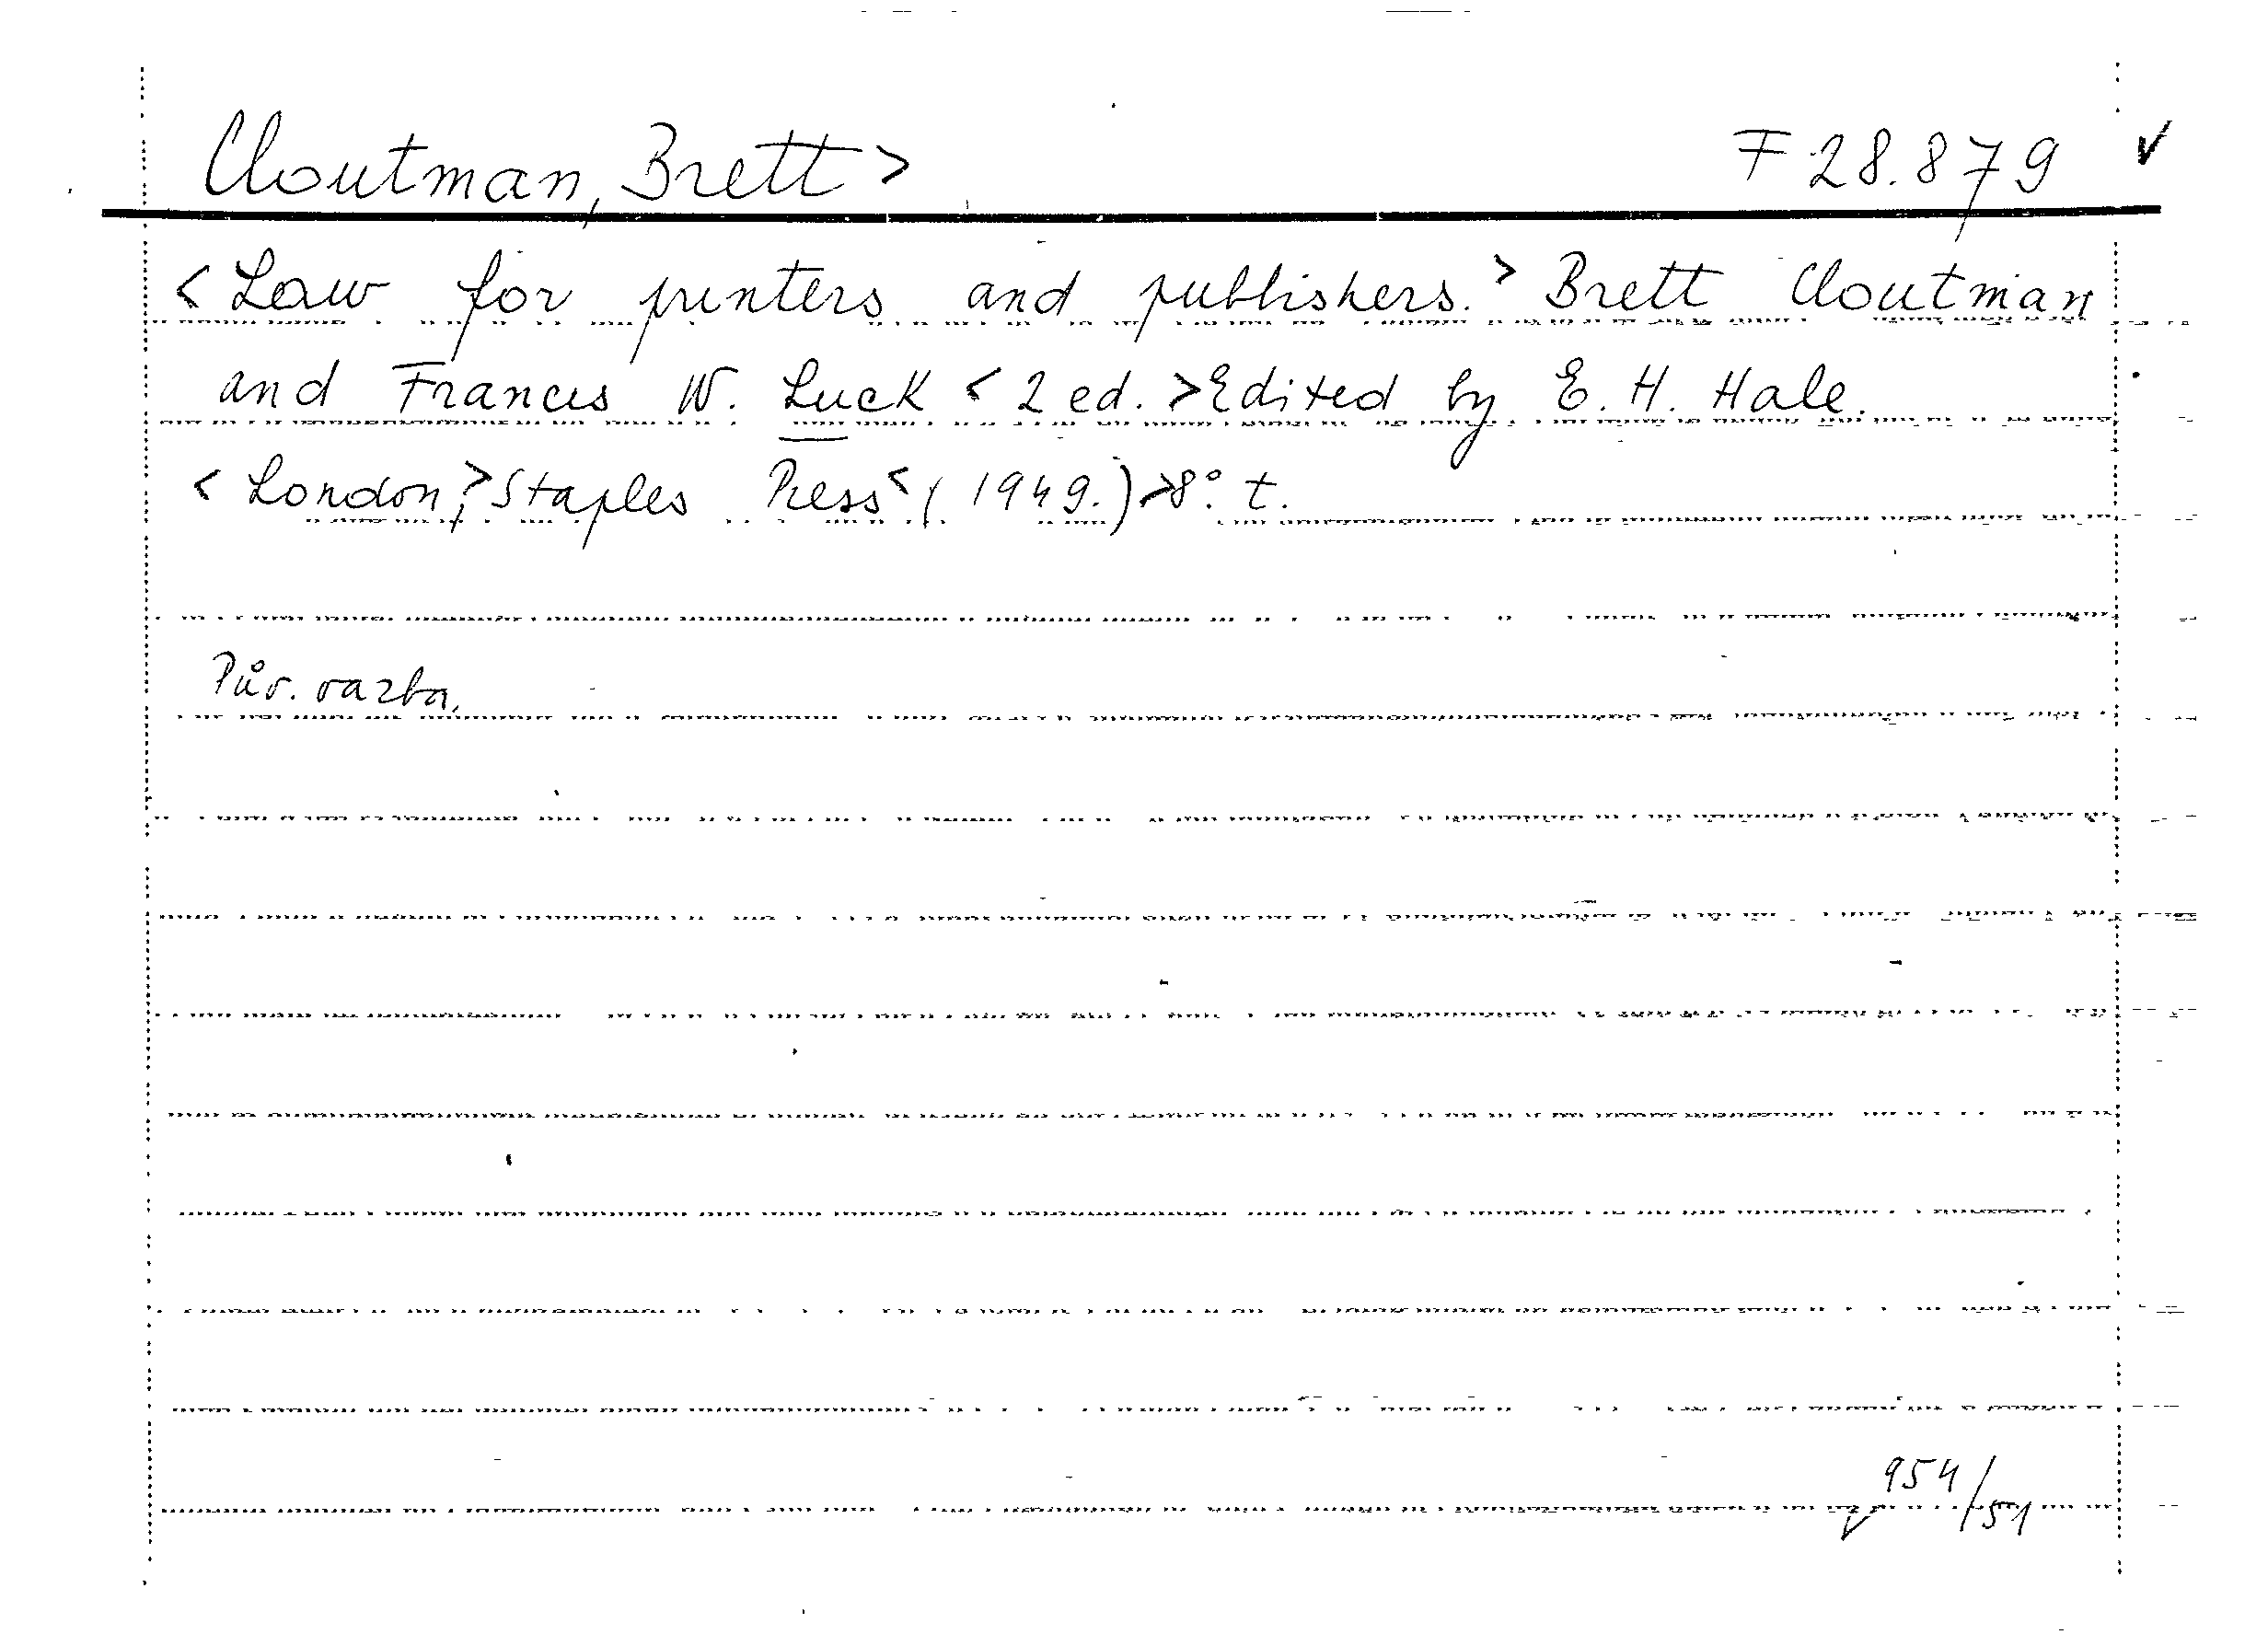 Cloutman, Brett > F 28.879 ✓
< Law for printers and publishers. > Brett Cloutman
and Francis W. Luck < 2 ed. > Edited by E. H. Hale.
< London, > Staples Press < (1949.) > 8°. t.
Pův. vazba.
954/51